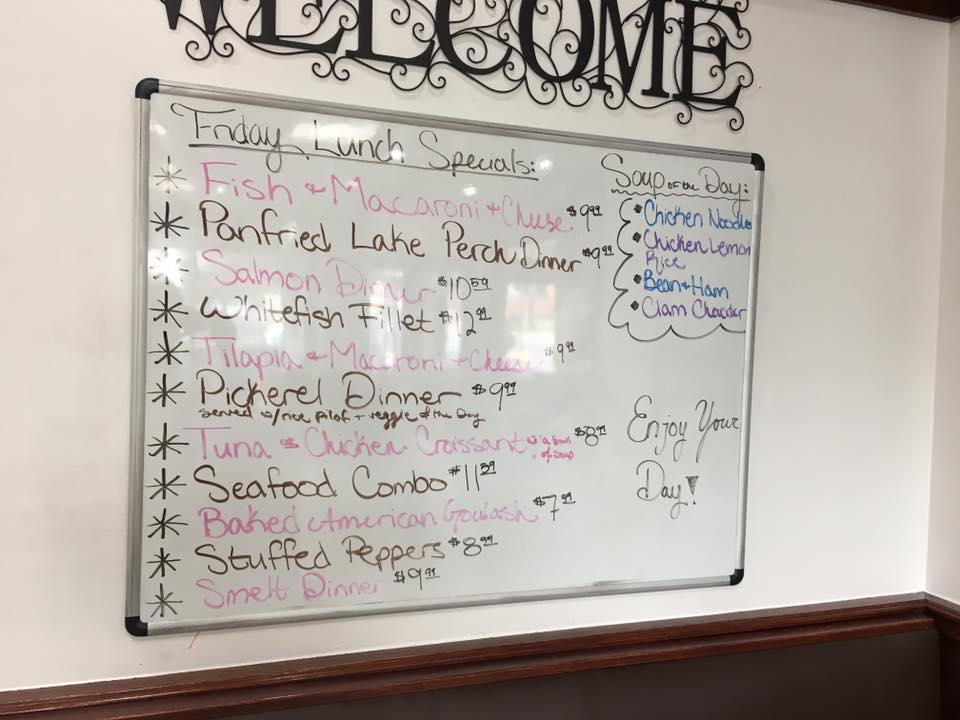 WELCOME
Friday Lunch Specials:
* Fish & Macaroni & Cheese $9.99
* Panfried Lake Perch Dinner $9.99
* Salmon Dinner $10.59
* Whitefish Fillet $12.99
* Tilapia & Macaroni & Cheese $9.99
* Pickerel Dinner $9.99
Served w/rice Pilaf + veggie of the Day
* Tuna or Chicken Croissant w/a bowl $8.99
of soup
* Seafood Combo $11.59
* Baked American Goulash $7.99
* Stuffed Peppers $8.99
* Smelt Dinner $9.99
Soup of the Day:
• Chicken Noodle
• Chicken Lemon
Rice
• Bean & Ham
• Clam Chowder
Enjoy Your
Day!